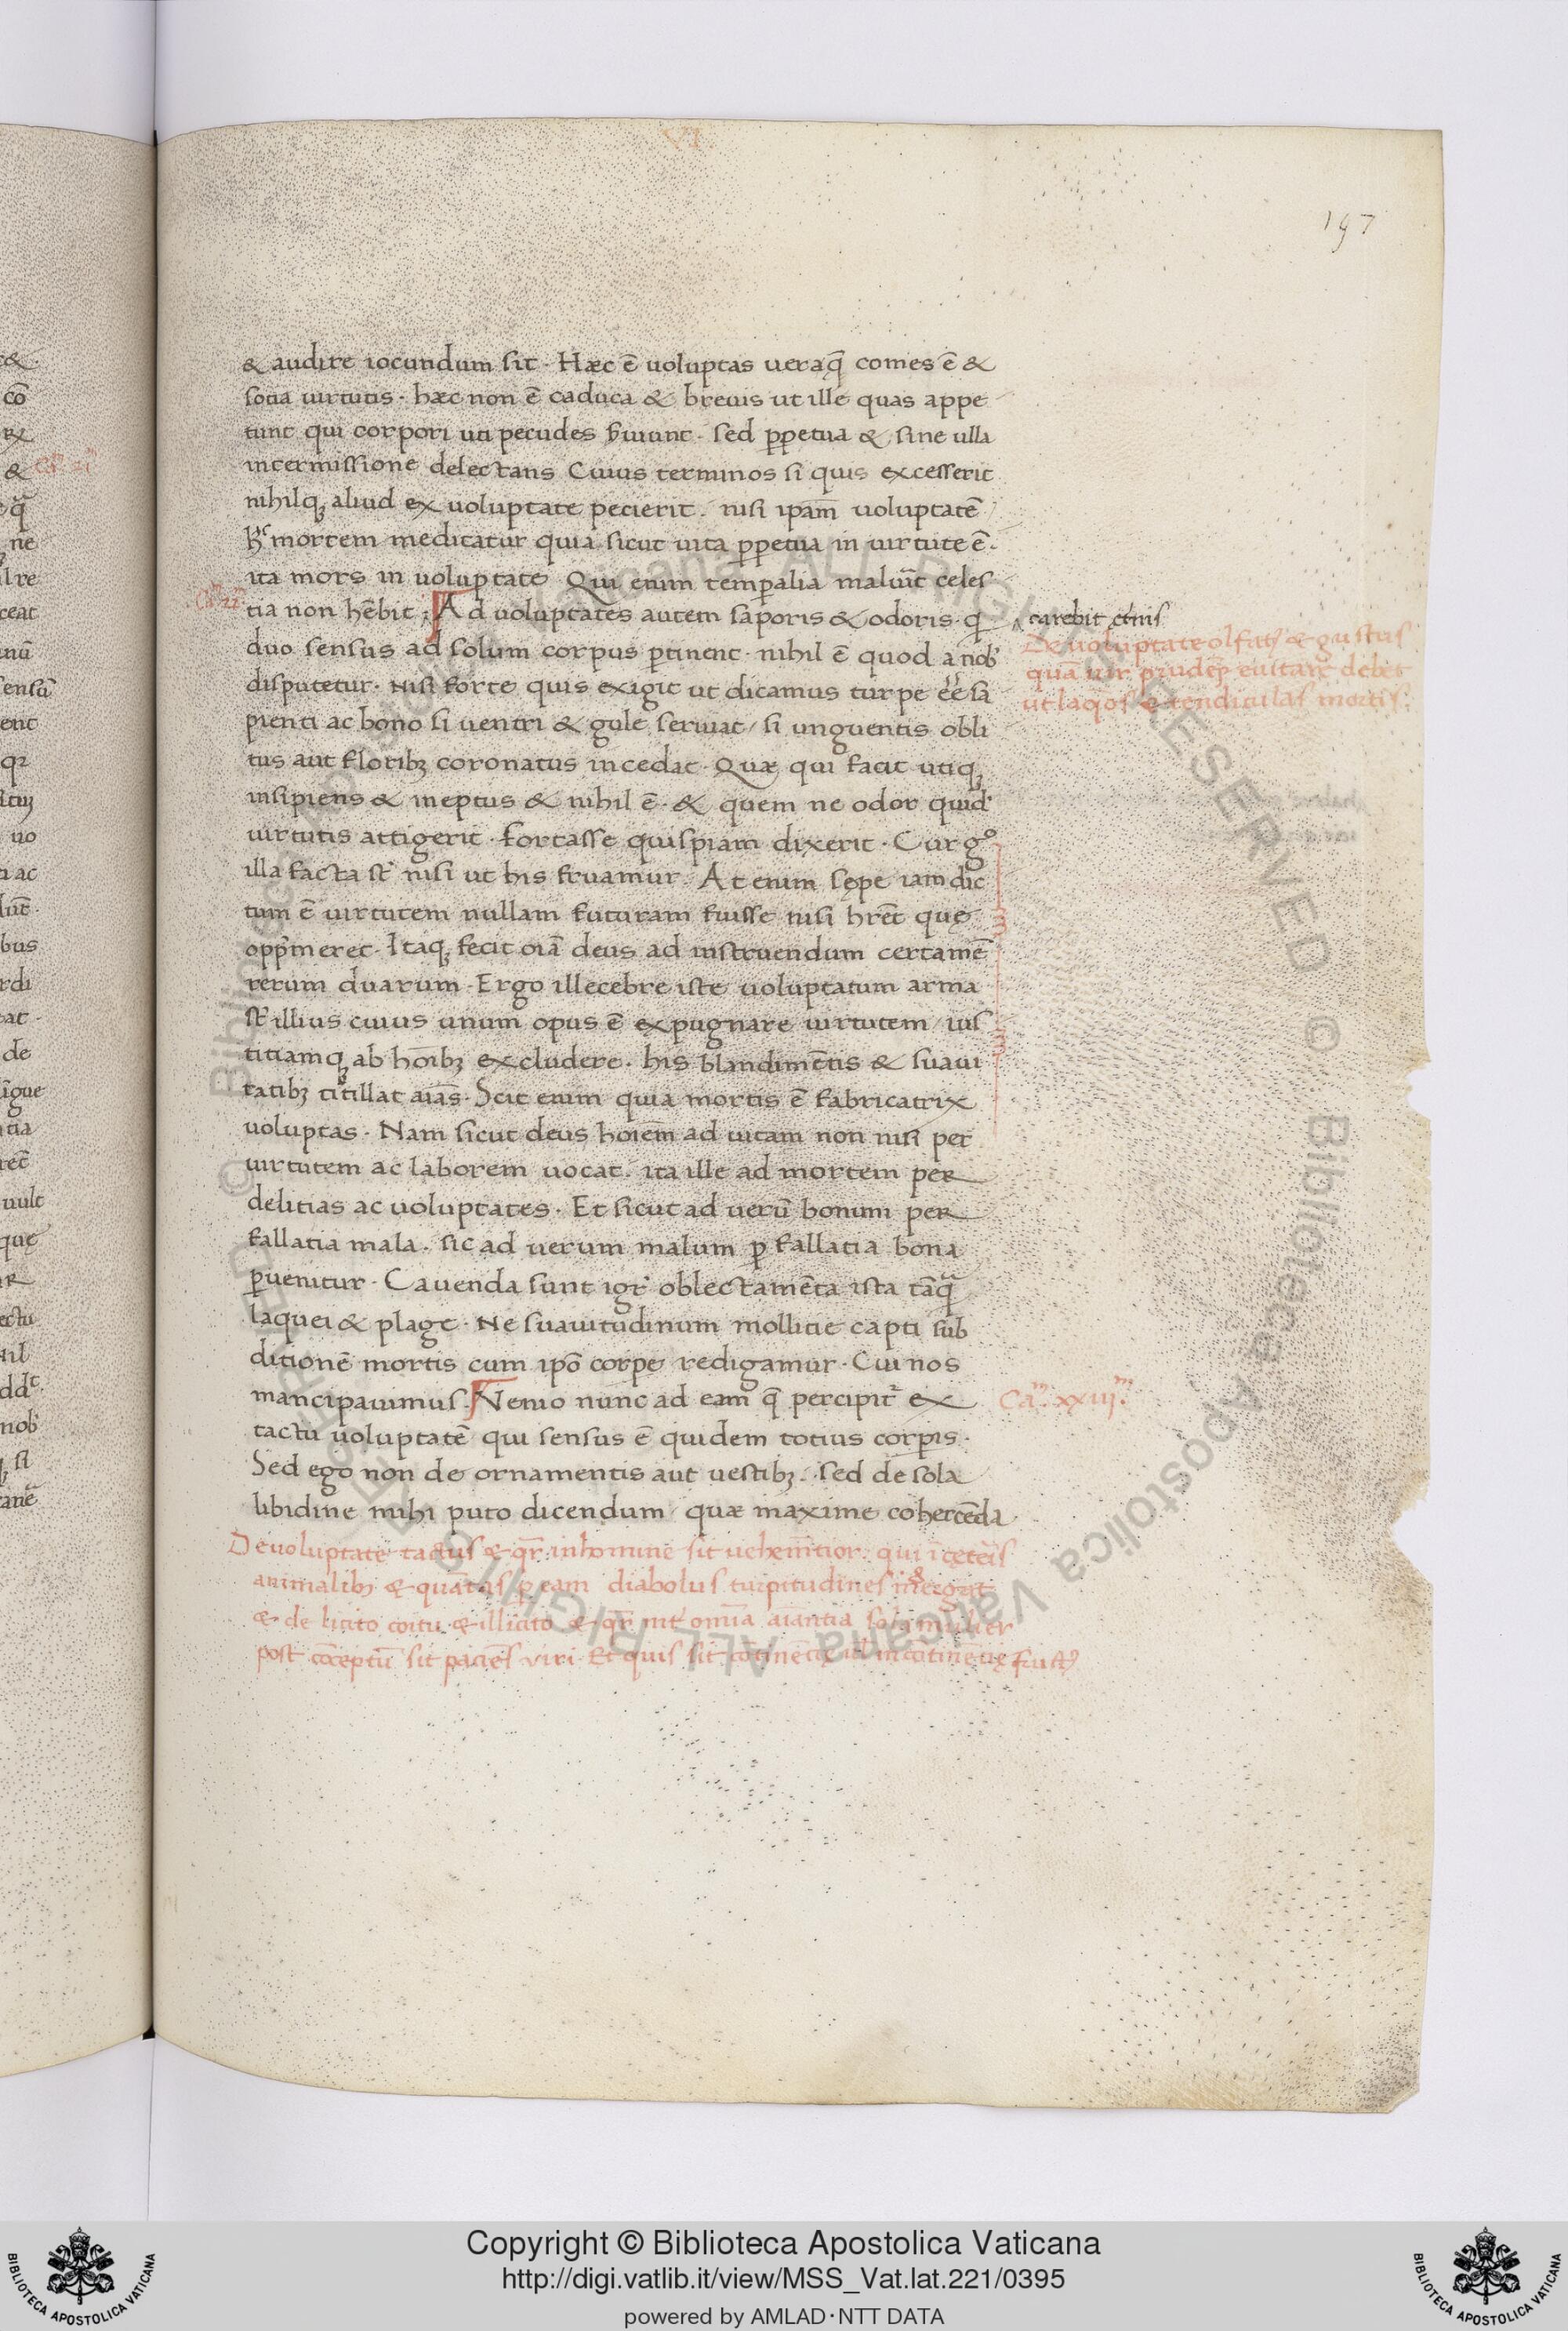 197
& audire iocundum sit · Hæc ē uoluptas ueraq̄ comes ē &
sotia uirtutis · hæc non ē caduca & breuis ut ille quas appe
tunt qui corpori uti pecudes s̄uiunt · sed ꝑpetua & sine ulla
intermissione delectans Cuius terminos si quis excesserit
nihilqꝫ aliud ex uoluptate pecierit · nisi ipam̄ uoluptatē
mortem meditatur quia sicut uita ꝑpetua in uirtute ē ·
ita mors in uoluptate Qui enim temꝑalia maluit̄ celes
tia non hēbit ; Ad uoluptates autem saporis & odoris · q̄
duo sensus ad solum corpus ꝑtinent · nihil ē quod a nob̛
disputetur · nisi forte quis exigit ut dicamus turpe ēē sa
pienti ac bono si uentri & gule seruiat / si unguentis obli
tus aut floribꝫ coronatus incedat · Quæ qui facit utiqꝫ
insipiens & ineptus & nihil ē · & quem ne odor quid̛
uirtutis attigerit · fortasse quispiam dixerit · Cur gͦ
illa facta st̄ nisi ut his fruamur · At enim sępe iam dic
tum ē uirtutem nullam futuram fuisse nisi hret̄ quę
opp̄meret · Itaqꝫ fecit oīa deus ad instruendum certamē
rerum duarum · Ergo illecebre iste uoluptatum arma
st̄ illius cuius unum opus ē expugnare uirtutem / ius
titiamqꝫ ab hoībꝫ excludere · his blandimētis & suaui
tatibꝫ titillat aīas · Scit enim quia mortis ē fabricatrix
uoluptas · Nam sicut deus hoīem ad uitam non nisi per
uirtutem ac laborem uocat · ita ille ad mortem per
delitias ac uoluptates · Et sicut ad uerū bonum per
fallatia mala · sic ad uerum malum ꝑ fallatia bona
ꝑuenitur · Cauenda sunt igr̄ oblectamēta ista tāq̄
laquei & plage · Ne suauitudinum mollitie capti sub
ditionē mortis cum ipō corpe redigamur · Cui nos
mancipauimus · Venio nunc ad eam q̄ percipit᷑ ex
tactu uoluptatē qui sensus ē quidem totius corꝑis ·
Sed ego non de ornamentis aut uestibꝫ · sed de sola
libidine mihi puto dicendum / quæ maxime cohercēda
De uoluptate tactus & qr̄ in homine sit uehemētior qui ī ceteris
animalibꝫ & quantas ꝑ eam diabolus turpitudines
& de licito coitu & illicito & qr̄ int̄ omnia aīantia sola mulier
post cōceptū sit paciēs viri · Et quis sit cōtinētię ul̄ incōtinētię fruct᷒
carebit et̄nis
De uoluptate olfat᷒ & gustus
quā uir prudēs euitare debet
ut laq̄os & tendiculas mortis ·
Ca᷑ᵐ · xxiijᵐ ·
Copyright © Biblioteca Apostolica Vaticana
http://digi.vatlib.it/view/MSS_Vat.lat.221/0395
powered by AMLAD·NTT DATA
BIBLIOTECA APOSTOLICA VATICANA
BIBLIOTECA APOSTOLICA VATICANA